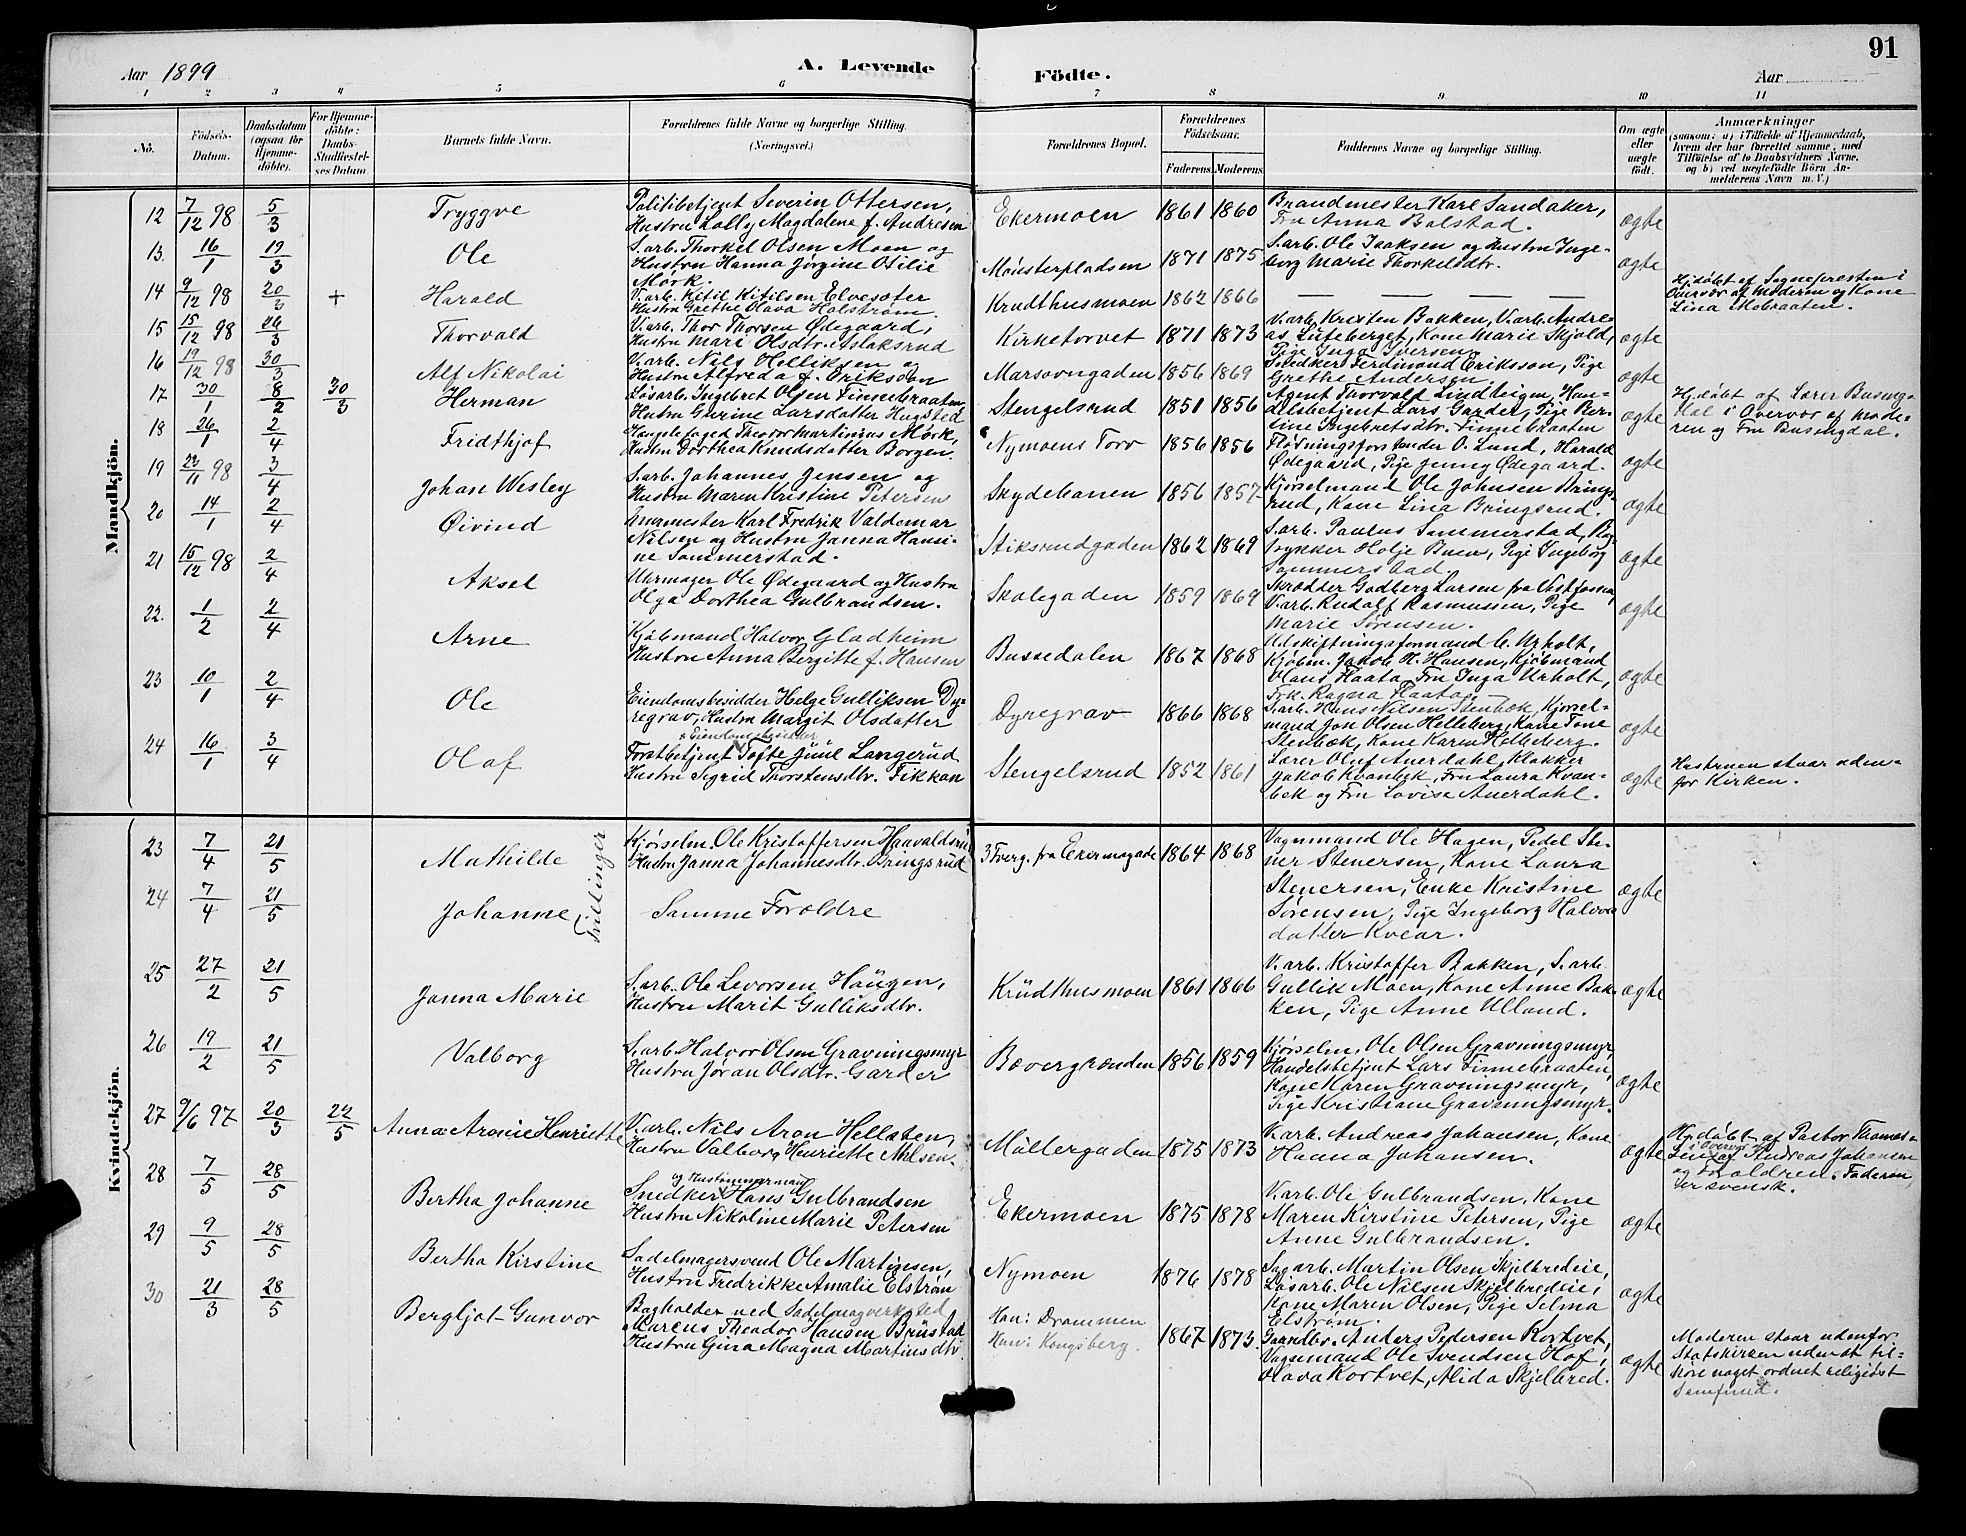 91
Aar 1899
A. Levende
Födte.
Aar
1 2 3 4 5 6 7 8 9 10 11
No.
Födsels-Datum.
Daabsdatum (ogsaa för Hjemme-döbte).
For Hjemme-döbte: Daabs-Stadfæstel-ses Datum.
Barnets fulde Navn.
Forældrenes fulde Navne og borgerlige Stilling. (Næringsvei.)
Forældrenes Bopæl.
Forældrenes Födselsaar.
Faderens Moderens
Faddernes Navne og borgerlige Stilling.
Om ægte eller uægte födt.
Anmærkninger
(saasom: a) i Tilfælde af Hjemmedaab, hvem der har forrettet samme, med Tilföielse af to Daabsvidners Navne, og b) ved uægtefödte Börn An-melderens Navn m. V.)
Mandkjön.
12 7/12 98 5/3 Tryggve
Politibetjent Severin Ottersen,
Hustru Lally Magdalene f. Andresen
Ekermoen 1861 1860
Brandmester Karl Sandaker,
Fru Anna Bolstad.
ægte
13. 16/1 19/3 Ole
S.arb. Thorkel Olsen Moen og
Hustru Hanna Jørgine Otilie
Mørk.
Mönsterpladsen 1871 1875
S.arb. Ole Isaksen og Hustru Inge-
borg Marie Thorkelsdtr.
ægte
14 9/12 98 20/3 + Harald
V.arb. Kitil Kitilsen Elvesæter
Hustru Grethe Olava Holstrøm.
Krudthusmoen 1862 1866
— — — —
Hj.døbt af Sognepresten i
Overvær af Moderen og Kone
Lina Skobraaten.
15 15/12 98 26/3 Thorvald
V.arb. Thor Thorsen Ødegaard,
Hustru Mari Olsdtr. Aslaksrud
Kirketorvet 1871 1873
V.arb. Kristen Bakken, V.arb. Andre-
as Luteberget, Kone Marie Skjold,
Pige Inga Iversen
ægte
16 19/12 98 30/3 Alf Nikolai
V.arb. Nils Helliksen og
Hustru Alfreda f. Eriksøn
Marsovngaden 1856 1869
Snedker Ferdinand Eriksson, Pige
Grethe Andersen
ægte
17 30/1 8/2 30/3 Herman
Løsarb. Ingebret Olsen Finnebraaten
Hustru Gurine Larsdatter Hugsted
Stengelsrud 1851 1856
Agent Thorvald Lindteigen, Han-
delsbetjent Lars Garder, Pige Ber-
line Ingebretsdtr. Finnebraaten
ægte
Hj.døbt af Lærer Buseng-
dal i Overvær af Mode-
ren og Fru Busengdal.
18 26/1 2/4 Fridthjof
Theodor Martinius Mörk,
Hustru Dorthea Knudsdatter Borgen.
Nymoens Torv 1856 1856
Flødningsforstander O. Lund, Harald
Ødegaard, Pige Jenny Ødegaard.
ægte
19 22/11 98 3/4 Johan Wesley
S.arb. Johannes Jensen og
Hustru Maren Kristine Petersen
Skydebanen 1856 1857
Kjørselmand Ole Johnsen Brings-
rud, Kone Lina Bringsrud.
ægte
20 14/1 2/4 Øivind
Murmester Karl Fredrik Valdemar
Nilsen og Hustru Janna Hansi-
ne Sommerstad.
Stiksrudgaden 1862 1869
S.arb. Paulus Sommerstad, Bog-
trykker Holje Buen, Pige Ingeborg
Sommerstad.
ægte
21 15/12 98 2/4 Aksel
Uhrmager Ole Ødegaard og Hustru
Olga Dorthea Gulbrandsen.
Skolegaden 1859 1869
Skrædder Gudberg Larsen fra Vestfossen,
V.arb. Rudolf Rasmussen, Pige
Marie Sørensen.
ægte
22. 1/2 2/4 Arne
Kjøbmand Halvor Gladheim
Hustru Anna Bergitte f. Hansen
Bussedalen 1867 1868
Udskiftningsformand C. Urholt,
Kjøbm. Jakob H. Hansen, Kjøbmand
Olaus Flaata, Fru Inga Urholt,
Frk. Ragna Flaata.
ægte
23 10/1 2/4 Ole
Eiendomsbesidder Helge Gulliksen Dy-
regrav, Hustru Margit Olsdatter
Dyregrav 1866 1868
S.arb. Hans Nilsen Stenbæk, Kjørsel-
mand Jon Olsen Helleberg, Kone Tone
Stenbæk, Kone Karen Helleberg.
ægte
24 16/1 3/4 Olaf
& Eiendomsbesidder
Forstbetjent Tofte Juul Langerud
Hustru Sigrid Thorstensdtr. Fikkan
Stengelsrud 1852 1861
Lærer Oluf Auerdahl, Klokker
Jakob Kvanbæk, Fru Laura Kvan-
bæk og Fru Lovise Auerdahl.
ægte
Hustruen staar uden-
for Kirken.
Kvindekjön.
23 7/4 21/5 Mathilde
Tvillinger
Kjørselm. Ole Kristoffersen Haavaldsrud
Hustru Janna Johannesdtr. Bringsrud
3 Tverg. fra Ekermogade 1864 1868
Vognmand Ole Hagen, Pedel Ste-
ner Stenersen, Kone Laura
Stenersen, Enke Kristine
Sørensen, Pige Ingeborg Halvors
datter Kvear.
ægte
24 7/4 21/5 Johanne
Samme Foræeldre
25 27/2 21/5 Janna Marie
S.arb. Ole Levorsen Haugen,
Hustru Marit Gulliksdtr.
Krudthusmoen 1861 1866
V.arb. Kristoffer Bakken, S.arb.
Gullik Moen, Kone Anne Bak-
ken, Pige Anne Ulland.
ægte
26 19/2 21/5 Valborg
S.arb. Halvor Olsen Gravningsmyr
Hustru Jøran Olsdtr. Garder
Bævergrænden 1856 1859
Kjørselm. Ole Olsen Gravningsmyr,
Handelsbetjent Lars Finnebraaten,
Kone Karen Gravningsmyr,
Pige Kristiane Gravningsmyr.
ægte
27 9/6 97 20/3 22/5 Anna Aronie Henriette
V.arb. Nils Aron Hellsten,
Hustru Valborg Henriette Nilsen.
Møllergaden 1875 1873
V.arb. Andreas Johansen, Kone
Hanna Johansen.
ægte
Hj.døbt af Pastor Thomes-
sen i Overvær af Andreas Johansen
og Forældrene. Faderen
er svensk.
28 7/5 28/5 Bertha Johanne
og Hustømmermand
Snedker Hans Gulbrandsen
Hustru Nikoline Marie Petersen
Ekermoen 1875 1878
V.arb. Ole Gulbrandsen, Kone
Maren Kirstine Petersen, Pige
Anne Gulbrandsen.
ægte
29 9/5 28/5 Bertha Kirstine
Sadelmagersvend Ole Martinsen,
Hustru Fredrikke Amalie Elstrøm
Nymoen 1876 1878
Sagarb. Martin Olsen Skjelbredeie,
Løsarb. Ole Nilsen Skjelbredeie,
Kone Maren Olsen, Pige Selma
Elstrøm.
ægte
30 21/3 28/5 Bergljot Gunvor
Bogholder ved Sadelmagverksted
Marcus Theodor Hansen Brustad
Hustru Gina Magna Martinsdtr.
Han: Drammen
Hun: Kongsberg. 1867 1873.
Gaardbr. Anders Pedersen Kortvet,
Vognmand Ole Svendsen Hof,
Olava Kortvet, Alida Skjelbred.
ægte
Moderen staar udenfor
Statskirken uden at til-
høre noget ordnet religiøst
Samfund.